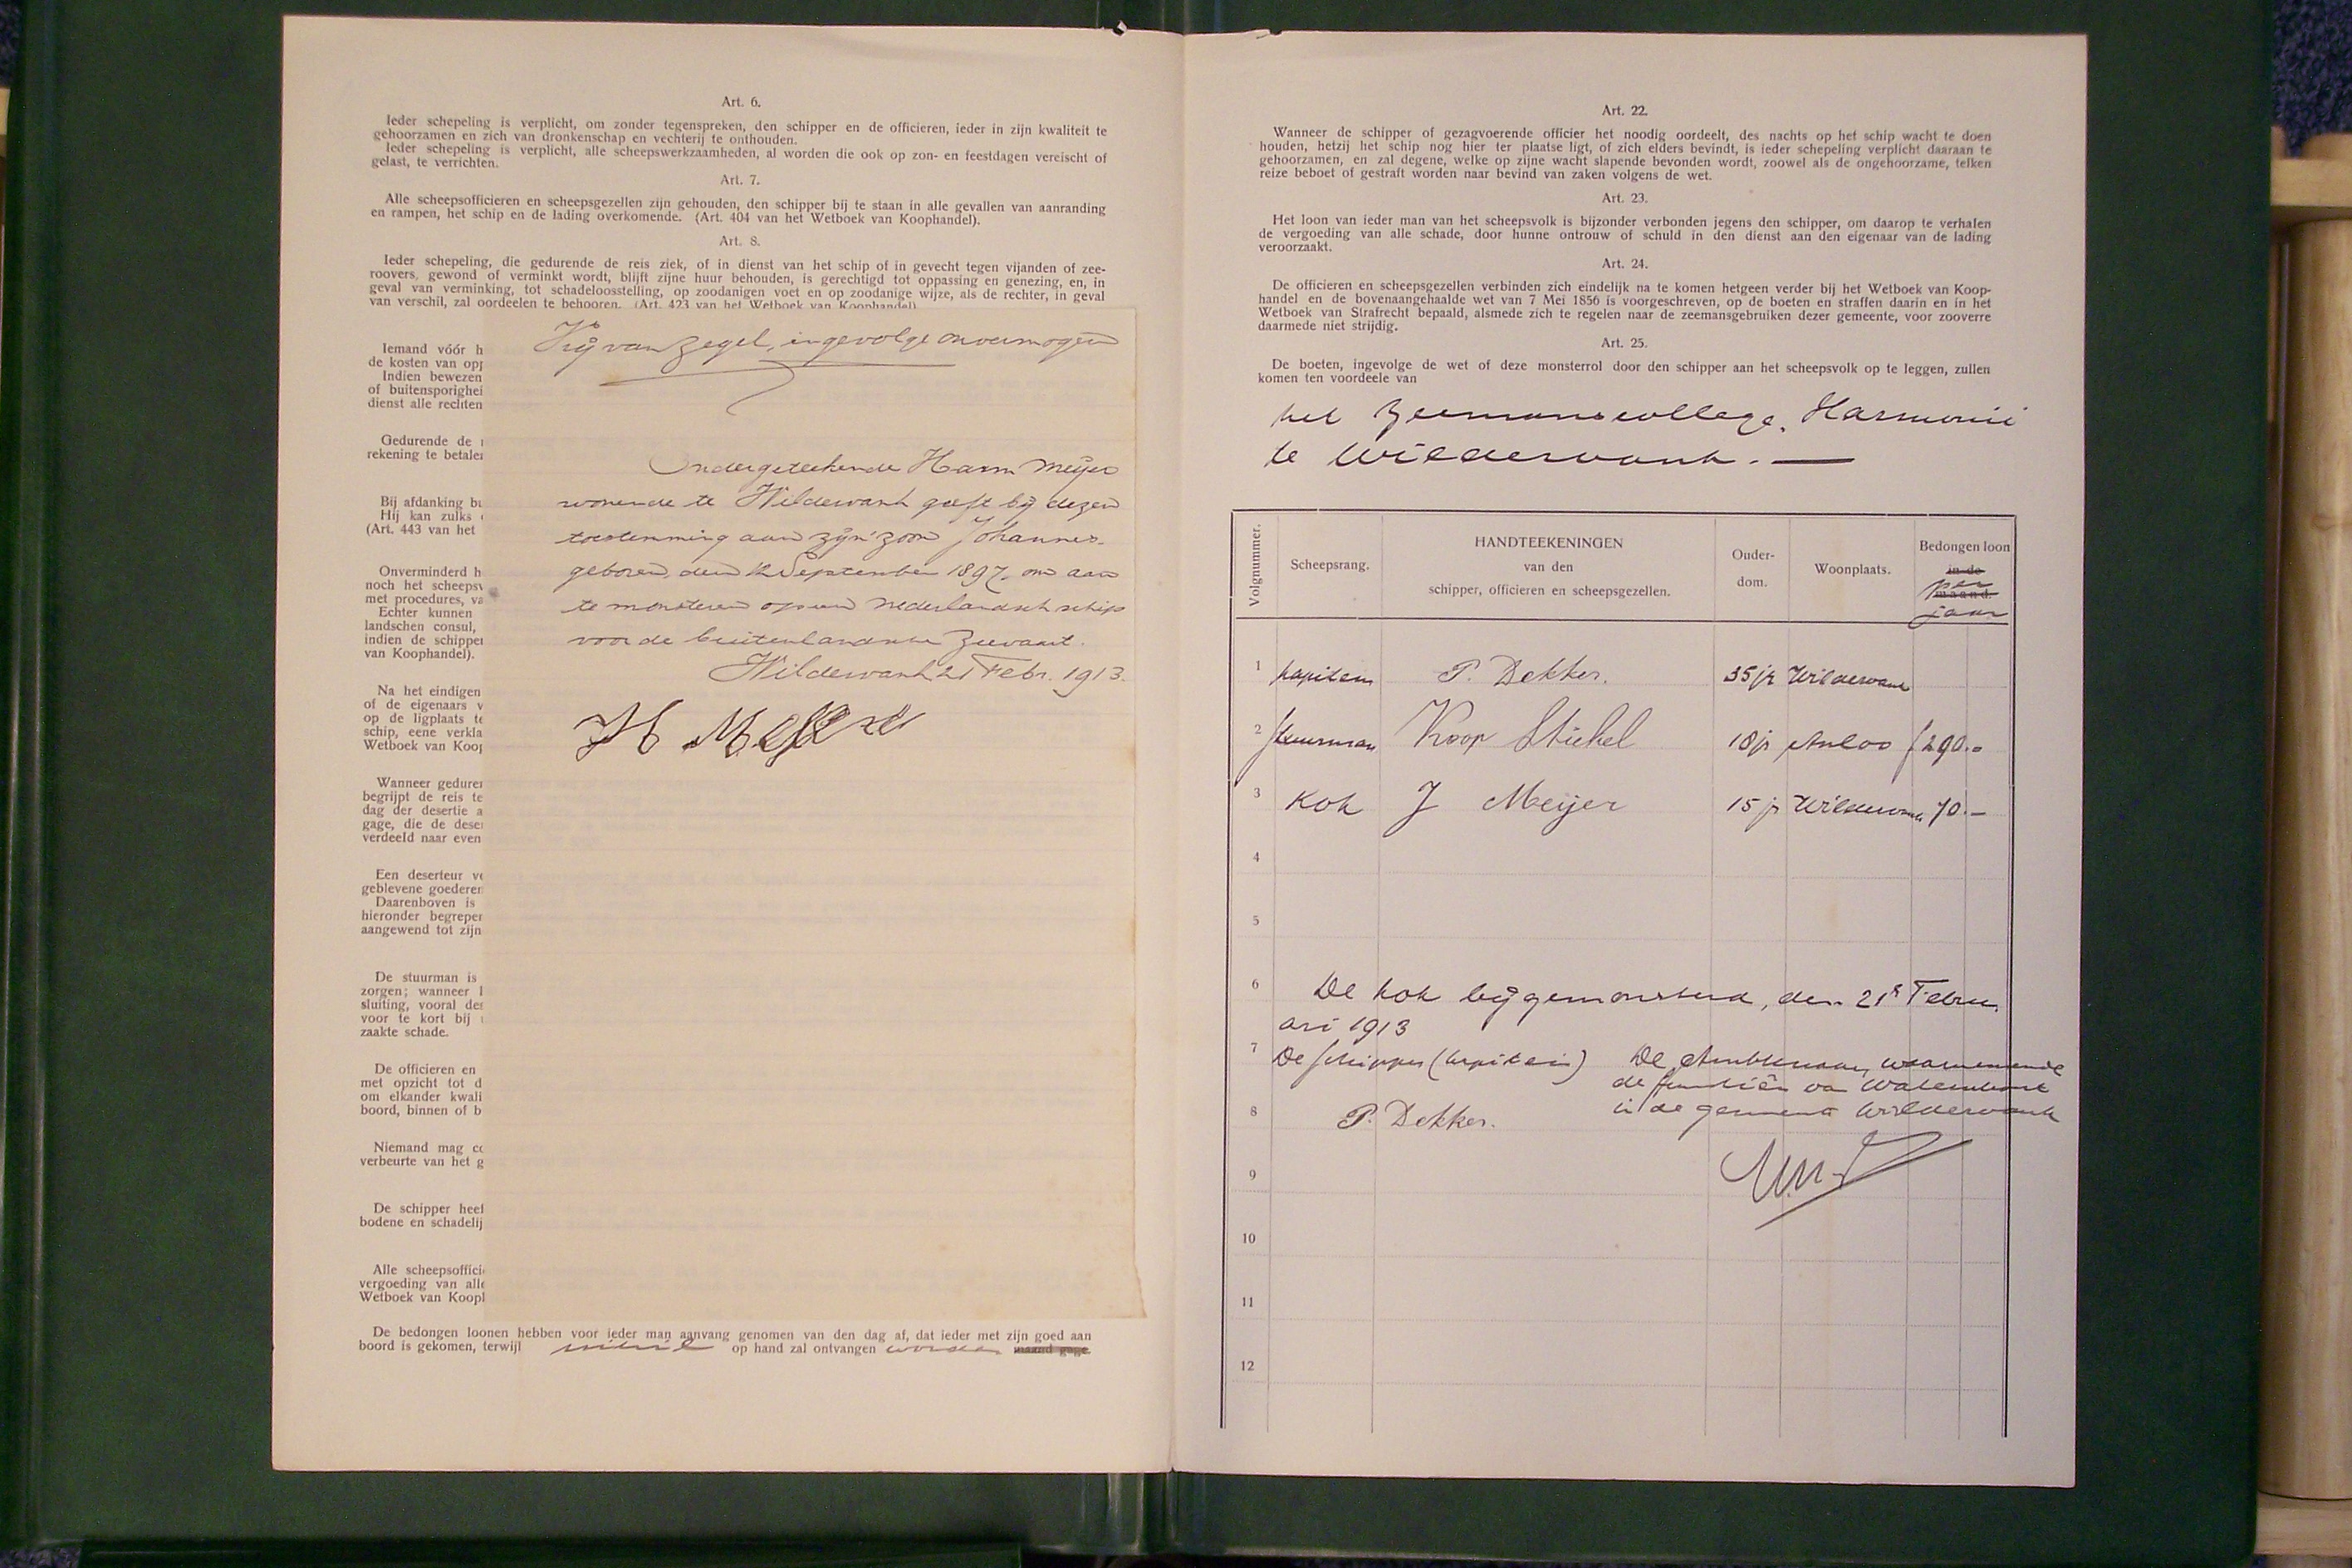 Art. 6.
Ieder schepeling is verplicht, om zonder tegenspreken, den schipper en de officieren, ieder in zijn kwaliteit te
gehoorzamen en zich van dronkenschap en vechterij te onthouden.
Ieder schepeling is verplicht, alle scheepswerkzaamheden, al worden die ook op zon- en feestdagen vereischt of
gelast, te verrichten.
Art. 7.
Alle scheepsofficieren en scheepsgezellen zijn gehouden, den schipper bij te staan in alle gevallen van aanranding
en rampen, het schip en de lading overkomende. (Art. 404 van het Wetboek van Koophandel).
Art. 8.
Ieder schepeling, die gedurende de reis ziek, of in dienst van het schip of in gevecht tegen vijanden of zee-
roovers, gewond of verminkt wordt, blijft zijne huur behouden, is gerechtigd tot oppassing en genezing, en, in
geval van verminking, tot schadeloosstelling, op zoodanigen voet en op zoodanige wijze, als de rechter, in geval
van verschil, zal oordeelen te behooren. (Art. 423 van het Wetboek van Koophandel).
Iemand vóór h
de kosten van opp
Indien bewezen
of buitensporighei
dienst alle rechten
Gedurende de
rekening te betale
Bij afdanking bu
Hij kan zulks
(Art. 443 van het
Onverminderd h
noch het scheepsv
met procedures, va
Echter kunnen
landschen consul,
indien de schipper
van Koophandel).
Na het eindigen
of de eigenaars v
op de ligplaats te
schip, eene verkla
Wetboek van Koop
Wanneer gedurer
begrijpt de reis te
dag der desertie a
gage, die de deser
verdeeld naar even
Een deserteur ve
geblevene goederen
Daarenboven is
hieronder begreper
aangewend tot zijn
De stuurman is
zorgen; wanneer
sluiting, vooral des
voor te kort bij
zaakte schade.
De officieren en
met opzicht tot d
om elkander kwali
boord, binnen of b
Niemand mag co
verbeurte van het g
De schipper heef
bodene en schadelij
Alle scheepsoffici
vergoeding van alle
Wetboek van Koopl
Vrij van zegel, ingevolge onvermogen
Ondergeteekende Harm Meijer
wonende te Wildervank geeft bij dezen
toestemming aan zijn zoon Johannes
geboren, den 12 September 1897, om aan
te monsteren op een Nederlandsch schip
voor de buitenlandsche Zeevaart.
Wildervank 21 Febr. 1913.
H Meijer
De bedongen loonen hebben voor ieder man aanvang genomen van den dag af, dat ieder met zijn goed aan
boord is gekomen, terwijl op hand zal ontvangen worden maand gage.
Art. 22.
Wanneer de schipper of gezagvoerende officier het noodig oordeelt, des nachts op het schip wacht te doen
houden, hetzij het schip nog hier ter plaatse ligt, of zich elders bevindt, is ieder schepeling verplicht daaraan te
gehoorzamen, en zal degene, welke op zijne wacht slapende bevonden wordt, zoowel als de ongehoorzame, telken
reize beboet of gestraft worden naar bevind van zaken volgens de wet.
Art. 23.
Het loon van ieder man van het scheepsvolk is bijzonder verbonden jegens den schipper, om daarop te verhalen
de vergoeding van alle schade, door hunne ontrouw of schuld in den dienst aan den eigenaar van de lading
veroorzaakt.
Art. 24.
De officieren en scheepsgezellen verbinden zich eindelijk na te komen hetgeen verder bij het Wetboek van Koop-
handel en de bovenaangehaalde wet van 7 Mei 1856 is voorgeschreven, op de boeten en straffen daarin en in het
Wetboek van Strafrecht bepaald, alsmede zich te regelen naar de zeemansgebruiken dezer gemeente, voor zooverre
daarmede niet strijdig.
Art. 25.
De boeten, ingevolge de wet of deze monsterrol door den schipper aan het scheepsvolk op te leggen, zullen
komen ten voordeele van
het Zeemanscollege, Harmonie
te Wildervank. —
Volgnummer. Scheepsrang. HANDTEEKENINGEN van den schipper, officieren en scheepsgezellen. Ouder-dom. Woonplaats. Bedongen loon in de maand. per jaar
1 Kapitein P. Dekker. 35 jr Wildervank
2 Stuurman Koop Stuhel 18 jr Anloo f 290.-
3 Kok J Meijer 15 jr Wildervank 70.-
4
5
6 De kok bijgemonsterd, den 21e Febru
ari 1913
7 De schipper (kapitein) De Ambtenaar, waarnemende
de functiën van Waterschout
in de gemeente Wildervank
8 P. Dekker.
9
10
11
12